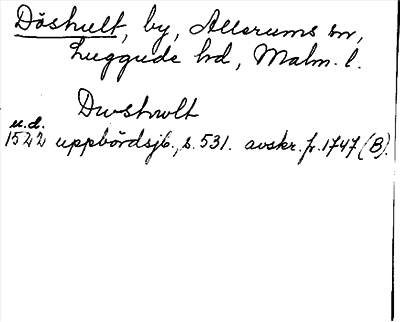 Döshult, by, Allerums sn,
Luggude hd, Malm. l.
Duushwlt
u.d.
1522 uppbördsjb., s. 531. avskr. fr. 1747 (B).